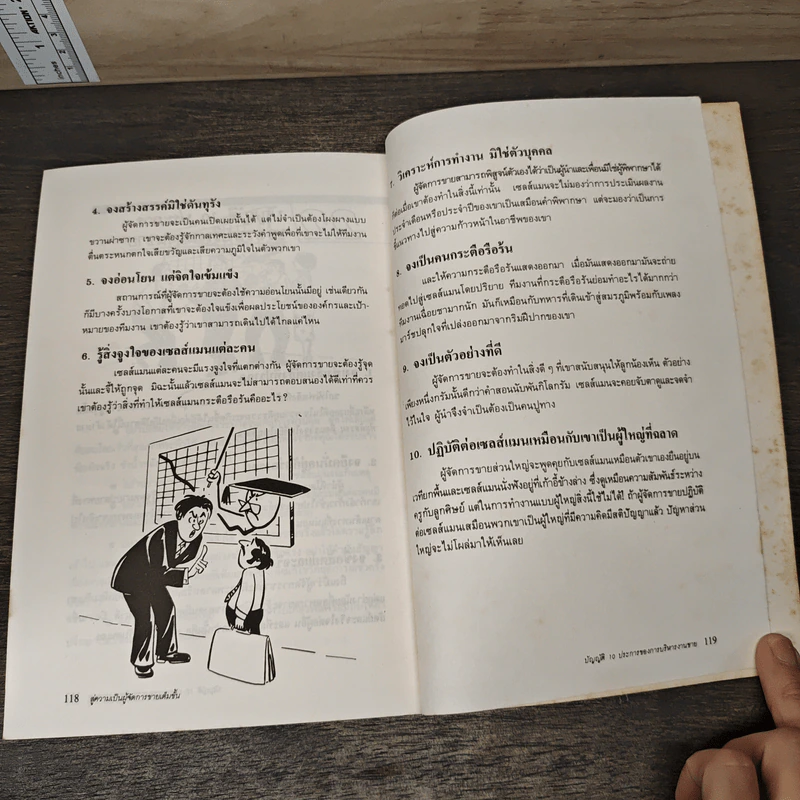 4. จงสร้างสรรค์มิใช่ดันทุรัง
ผู้จัดการขายจะเป็นคนเปิดเผยนั้นได้ แต่ไม่จำเป็นต้องโผงผางแบบ
ขวานผ่าซาก เขาจะต้องรู้จักกาลเทศะและระวังคำพูดเพื่อที่เขาจะไม่ให้ทีมงาน
ตื่นตระหนกตกใจเสียขวัญและเสียความภูมิใจในตัวพวกเขา
5. จงอ่อนโยน แต่จิตใจเข้มแข็ง
สถานการณ์ที่ผู้จัดการขายจะต้องใช้ความอ่อนโยนนั้นมีอยู่ เช่นเดียวกัน
ก็มีบางครั้งบางโอกาสที่เขาจะต้องใจแข็งเพื่อผลประโยชน์ขององค์กรและเป้า-
หมายของทีมงาน เขาต้องรู้ว่าเขาสามารถเดินไปได้ไกลแค่ไหน
6. รู้สิ่งจูงใจของเซลส์แมนแต่ละคน
เซลส์แมนแต่ละคนจะมีแรงจูงใจที่แตกต่างกัน ผู้จัดการขายจะต้องรู้จุด
นั้นและจี้ให้ถูกจุด มิฉะนั้นแล้วเซลส์แมนจะไม่สามารถตอบสนองได้ดีเท่าที่ควร
เขาต้องรู้ว่าสิ่งที่ทำให้เซลส์แมนกระตือรือร้นคืออะไร?
118 สู่ความเป็นผู้จัดการขายเต็มขั้น
7. วิเคราะห์การทำงาน มิใช่ตัวบุคคล
ผู้จัดการขายสามารถพิสูจน์ตัวเองได้ว่าเป็นผู้นำและเพื่อนมิใช่ผู้พิพากษาได้
ก็ต่อเมื่อเขาต้องทำในสิ่งนี้เท่านั้น เซลส์แมนจะไม่มองว่าการประเมินผลงาน
ประจำเดือนหรือประจำปีของเขาเป็นเสมือนคำพิพากษา แต่จะมองว่าเป็นการ
ชี้แนวทางไปสู่ความก้าวหน้าในอาชีพของเขา
8. จงเป็นคนกระตือรือร้น
และให้ความกระตือรือร้นแสดงออกมา เมื่อมันแสดงออกมามันจะถ่าย
ทอดไปสู่เซลส์แมนโดยปริยาย ทีมงานที่กระตือรือร้นย่อมทำอะไรได้มากกว่า
ทีมงานเฉื่อยชามากนัก มันก็เหมือนกับทหารที่เดินเข้าสู่สมรภูมิพร้อมกับเพลง
มาร์ชปลุกใจที่เปล่งออกมาจากริมฝีปากของเขา
9. จงเป็นตัวอย่างที่ดี
ผู้จัดการขายจะต้องทำในสิ่งดี ๆ ที่เขาสนับสนุนให้ลูกน้องเห็น ตัวอย่าง
เพียงหนึ่งกรัมนั้นดีกว่าคำสอนนับพันกิโลกรัม เซลส์แมนจะคอยจับตาดูและจดจำ
ไว้ในใจ ผู้นำจึงจำเป็นต้องเป็นคนปูทาง
10. ปฏิบัติต่อเซลส์แมนเหมือนกับเขาเป็นผู้ใหญ่ที่ฉลาด
ผู้จัดการขายส่วนใหญ่จะพูดคุยกับเซลส์แมนเหมือนตัวเขาเองยืนอยู่บน
เวทียกพื้นและเซลส์แมนนั่งฟังอยู่ที่เก้าอี้ข้างล่าง ซึ่งดูเหมือนความสัมพันธ์ระหว่าง
ครูกับลูกศิษย์ แต่ในการทำงานแบบผู้ใหญ่สิ่งนี้ใช้ไม่ได้! ถ้าผู้จัดการขายปฏิบัติ
ต่อเซลส์แมนเสมือนพวกเขาเป็นผู้ใหญ่ที่มีความคิดมีสติปัญญาแล้ว ปัญหาส่วน
ใหญ่จะไม่โผล่มาให้เห็นเลย
บัญญัติ 10 ประการของการบริหารงานขาย 119